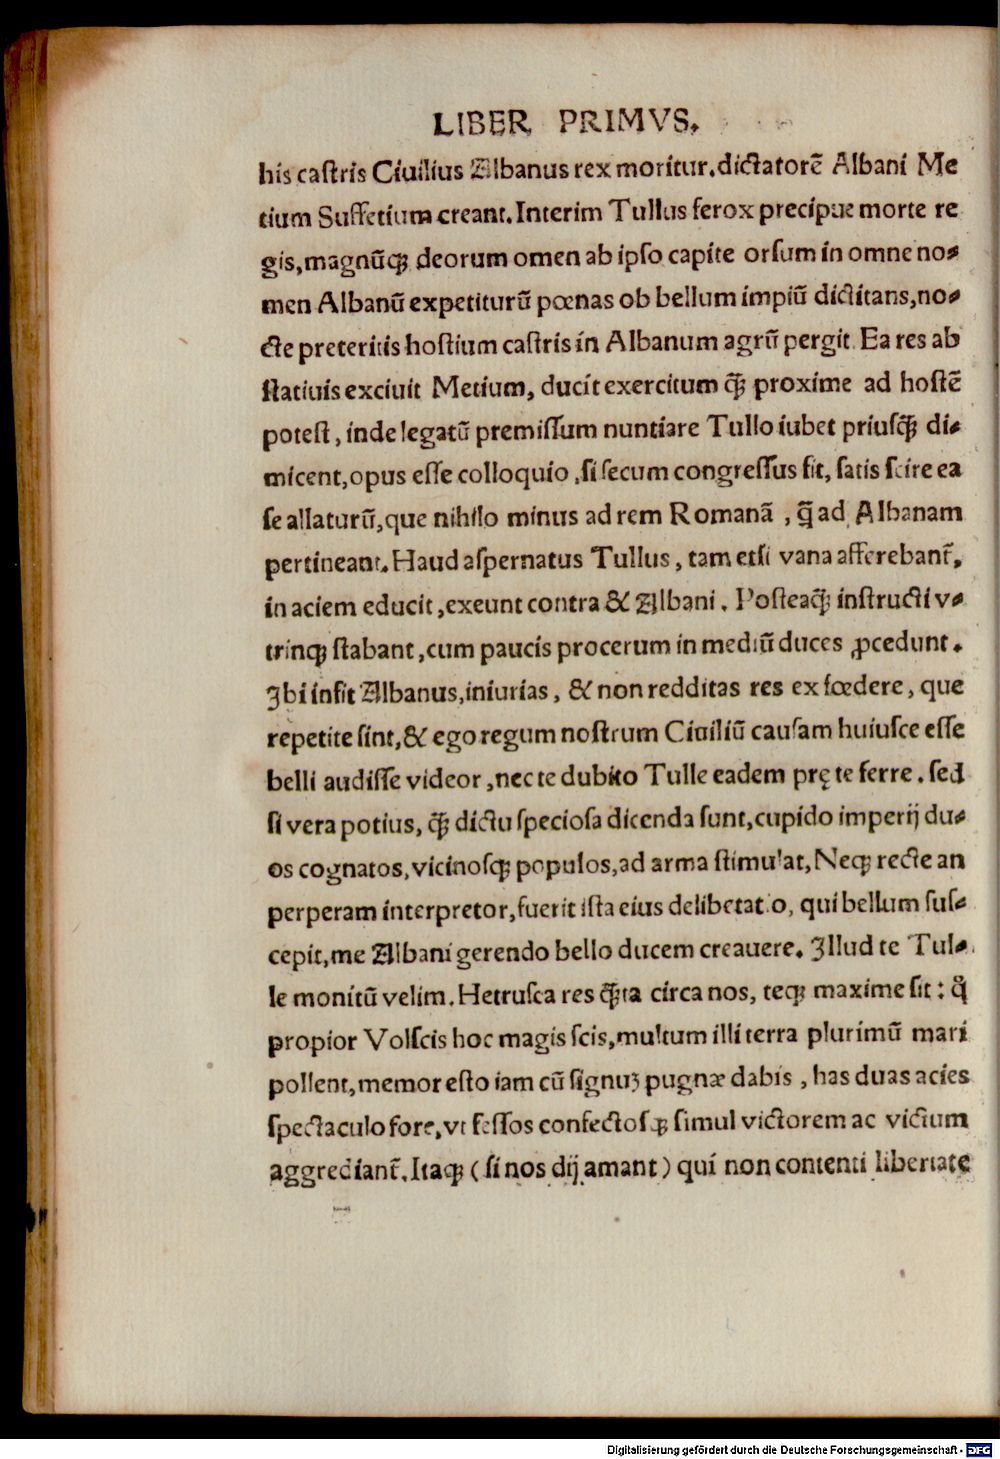 LIBER PRIMVS.
his caſtris Ciuilius Albanus rex moritur.dictatorē Albani Me
tium Suffetium creant.Interim Tullus ferox precipue morte re
gis,magnūq; deorum omen ab ipſo capite orſum in omne no⸗
men Albanū expetiturū pœnas ob bellum impiū dictitans,no⸗
cte preteritis hoſtium caſtris in Albanum agrū pergit Ea res ab
ſtatiuis exciuit Metium, ducit exercitum q̄ proxime ad hoſtē
poteſt, inde legatū premiſſum nuntiare Tullo iubet priuſq̄ di⸗
micent,opus eſſe colloquio ,ſi ſecum congreſſus ſit, ſatis ſcire ea
ſe allaturū,que nihilo minus ad rem Romanā , q̄ ad Albanam
pertineant.Haud aſpernatus Tullus, tam etſi vana afferebant̄,
in aciem educit,exeunt contra & Albani. Poſteaq̄ inſtructi v⸗
trinq; ſtabant,cum paucis procerum in mediū duces ꝓcedunt.
Ibi inſit Albanus,iniurias, & non redditas res ex fœdere, que
repetite ſint,& ego regum noſtrum Ciuiliū cauſam huiuſce eſſe
belli audiſſe videor,nec te dubito Tulle eadem prę te ferre. ſed
ſi vera potius, q̄ dictu ſpecioſa dicenda ſunt,cupido imperij du⸗
os cognatos,vicinoſq; populos,ad arma ſtimulat,Neq; recte an
perperam interpretor,fuerit iſta eius delibetatio, qui bellum ſuſ⸗
cepit,me Albani gerendo bello ducem creauere. Illud te Tul⸗
le monitū velim.Hetruſca res q̄ta circa nos, teq; maxime ſit: q̊
propior Volſcis hoc magis ſcis,multum illi terra plurimū mari
pollent,memor eſto iam cū ſignuꝫ pugnæ dabis, has duas acies
ſpectaculo fore,vt feſſos confectoſq; ſimul victorem ac victum
aggrediant̄.Itaq; (ſi nos dij amant) qui non contenti libertate
Digitalisierung gefördert durch die Deutsche Forschungsgemeinschaft - DFG